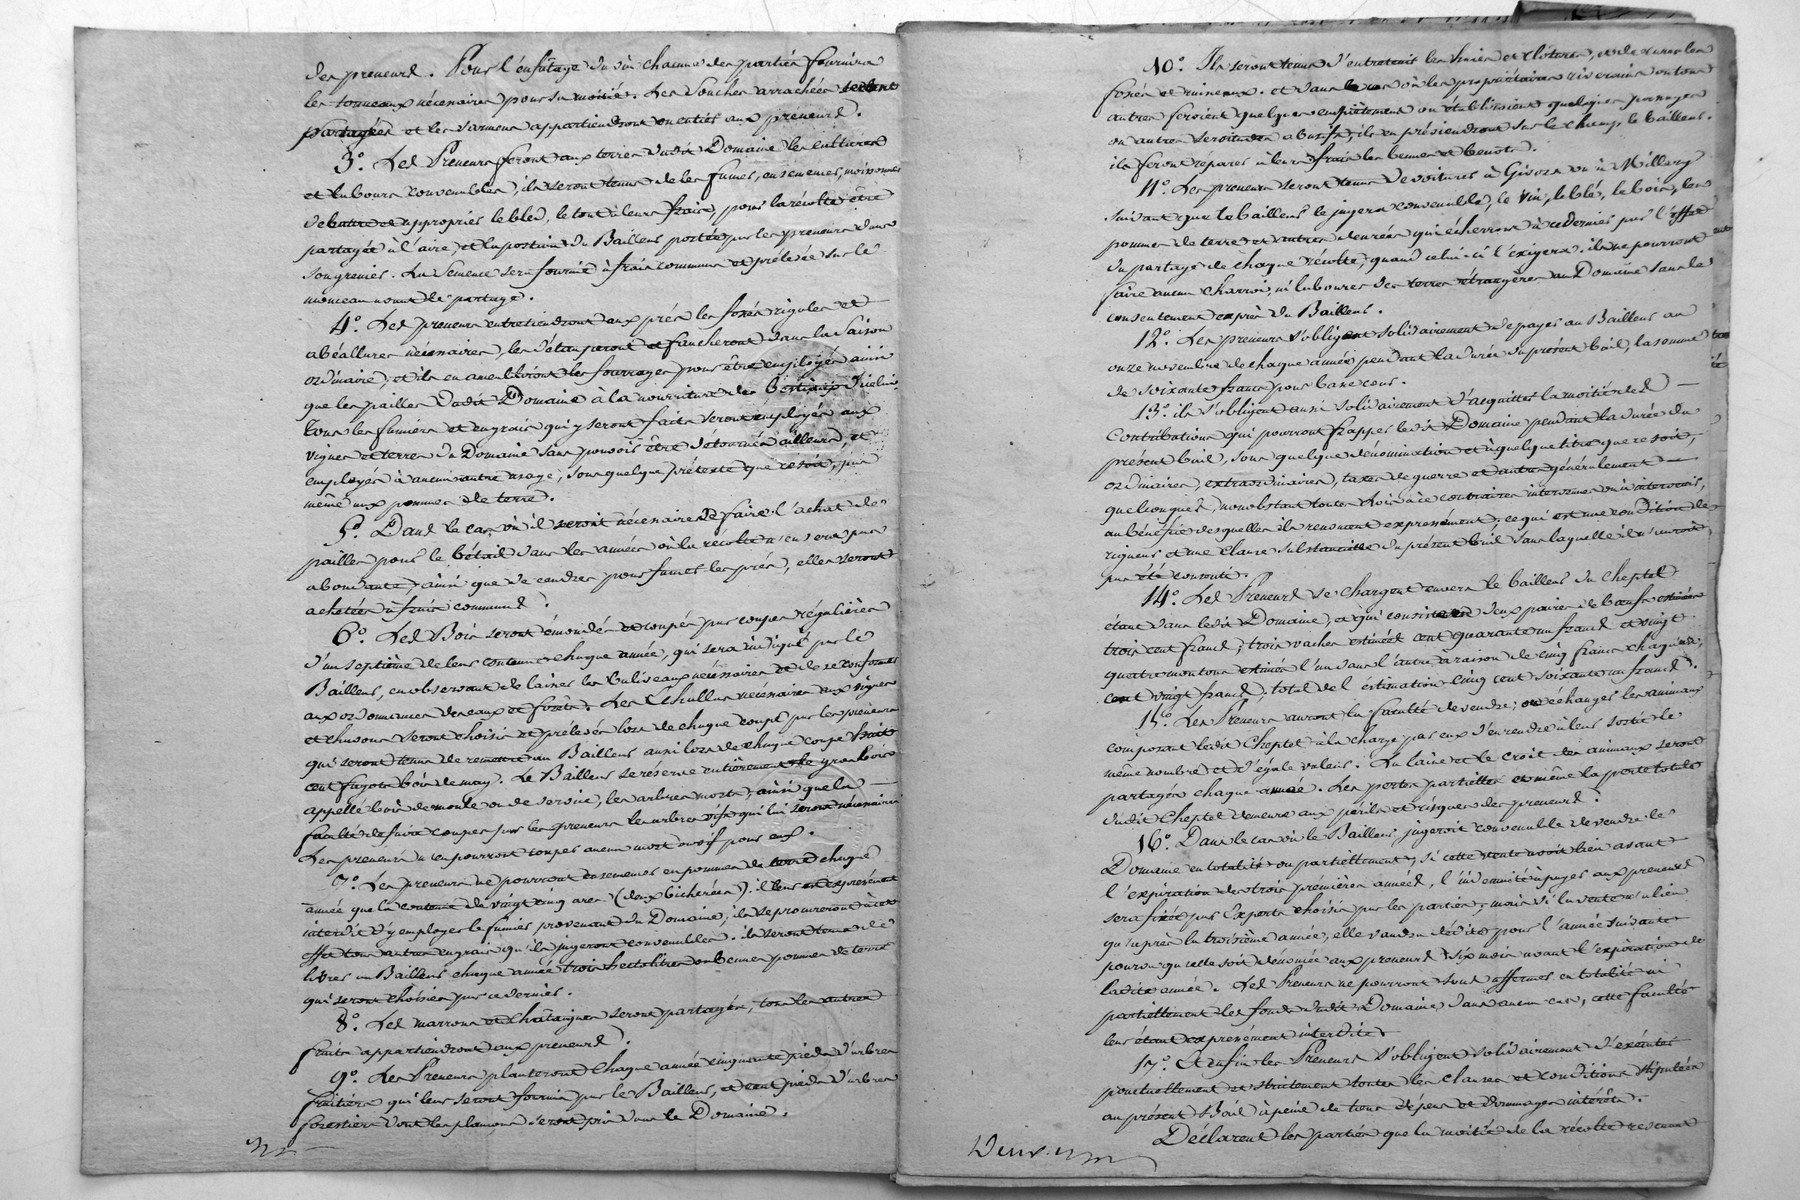 des preneurs. Pour l'enfûtage du vin chacune des parties fournira
les tonneaux nécessaires pour sa moitié. Les Souches arrachées seront
partagées et les sarmens appartiendront en entier aux preneurs.
3º. Les Preneurs feront aux terres dudit Domaine les cultures
et labours convenables, ils seront tenus de les fumer, ensemencer, moissonner
de battre et approprier le bled, le tout à leurs frais, pour la récolte être
partagée à l'aire, et la portion du Bailleur portée par les preneurs dans
son grenier. La Semence sera fournie à frais communs et prélevée sur le
monceau avant le partage.
4º. Les preneurs entretiendront aux prés les fossés rigoles et
abéallures nécessaires, les détauperont et faucheront dans la Saison
ordinaire, et ils en ameubliront les fourrages pour être employés ainsi
que les pailles dudit Domaine à la nourriture des Bestiaux d'icelui.
Tous les fumiers et engrais qui y seront faits seront employés aux
vignes et terres du Domaine sans pouvoir être détournés ailleurs, et
employés à aucun autre usage, sous quelque prétexte que ce soit, pas
même aux pommes de terre.
5º. Dans le cas où il seroit nécessaire de faire l'achat de
pailles pour le bétail dans les années où la récolte n'en sera pas
abondante, ainsi que de cendres pour fumer les prés, elles seront
achetées à frais communs.
6º. Les Bois seront émondés et coupés par coupes régulières
d'un septième de leur contenue chaque année, qui sera indiqué par le
Bailleur, en observant de laisser les baliseaux nécessaires et de se conformer
aux ordonnances des eaux et forêts. Les Echallas nécessaires aux vignes
et chavons seront choisis et prélevés lors de chaque coupe par les preneurs
qui seront tenus de remettre au Bailleur aussi lors de chaque coupe
cent fagots bois de may. Le Bailleur se réserve entièrement le gros bois
appellé bois de moule ou de service, les arbres morts, ainsi que la
faculté de faire couper par les preneurs les arbres vifs qui lui seront nécessaires
Les preneurs n'en pourront couper aucun mort ou vif pour eux.
7º. Les preneurs ne pourront ensemencer en pommes de terre chaque
année que la contenue de vingt cinq ares (deux bicherées), il leur est expressément
interdit d'y employer le fumier provenant du Domaine, ils se procureront à cet
effet tous autres engrais qu'ils jugeront convenables. ils seront tenus de
livrer au Bailleur chaque année trois hectolitres en bonnes pommes de terre
qui seront choisies par ce dernier.
8º. Les marrons et châtaignes seront partagés, tous les autres
fruits appartiendront aux preneurs.
9º. Les Preneurs planteront chaque année cinquante pieds d'arbres
fruitiers qui leur seront fournis par le Bailleur, et cent pieds d'arbres
forestiers dont les plançons seront pris dans le Domaine.
10º. Ils seront tenus d'entretenir les haies et clôtures, et de curer les
fossés et ruisseaux. et dans le cas où les propriétaires riverains ou tous
autres feroient quelques empiètemens ou établiroient quelques passages
ou autres servitudes abusifs, ils en préviendront sur le champ le bailleur.
ils feront reparer à leurs frais les bennes et benots.
11º. Les preneurs seront tenus de voiturer à Givors ou à Millery
suivant que le bailleur le jugera convenable, le vin, le blé, le bois, les
pommes de terre et autres denrées qui écherront à ce dernier par l'effet
du partage de chaque récolte, quand celui-ci l'exigera. ils ne pourront
faire aucun charroi, ni labourer des terres étrangères au Domaine sans le
consentement exprès du Bailleur.
12º. Les preneurs s'obligent solidairement de payer au Bailleur au
onze novembre de chaque année pendant la durée du présent bail, la somme
de soixante francs pour basse cour.
13º. ils s'obligent aussi solidairement d'acquitter la moitié des
Contributions qui pourront frapper ledit Domaine pendant la durée du
présent bail, sous quelque dénomination et à quelque titre que ce soit,
ordinaires, extraordinaires, taxes de guerre et autres généralement
quelconques, nonobstant toutes loix à ce contraires intervenues ou à intervenir,
au bénéfice desquelles ils renoncent expressément, ce qui est une condition de
rigueur et une clause substantielle du présent bail sans laquelle il n'auroit
pas été consenti.
14º. Les Preneurs se chargent envers le bailleur du cheptel
étant dans ledit Domaine, et qui consiste en deux paires de bœufs estimées
trois cent francs, trois vaches estimées cent quarante un francs et vingt
quatre moutons estimés l'un dans l'autre à raison de cinq francs chaque,
cent vingt francs, total de l'estimation cinq cent soixante un francs.
15º. Les Preneurs auront la faculté de vendre, ou échanger les animaux
composant ledit Cheptel à la charge par eux d'en rendre à leur sortie le
même nombre et d'égale valeur. La laine et le croit des animaux seront
partagés chaque année. Les pertes partielles et même la perte totale
dudit Cheptel demeure aux périls et risques des preneurs.
16º. Dans le cas où le Bailleur jugeroit convenable de vendre le
Domaine en totalité ou partiellement, si cette vente avoit lieu avant
l'expiration des trois premières années, l'indemnité à payer aux preneurs
sera fixée par Experts choisis par les parties; mais si la vente n'a lieu
qu'après la troisième année, elle vaudra dédite pour l'année suivante
pourvu qu'elle soit dénoncée aux preneurs six mois avant l'expiration de
ladite année. Les Preneurs ne pourront sous affermer en totalité ni
partiellement les fonds dudit Domaine dans aucun cas, cette faculté
leur étant expressément interdite.
17º. Et enfin les Preneurs s'obligent solidairement d'exécuter
ponctuellement et strictement toutes les clauses et conditions stipulées
au présent Bail à peine de tous dépens et dommages intérêts.
Déclarent les parties que la moitié de la récolte revenant